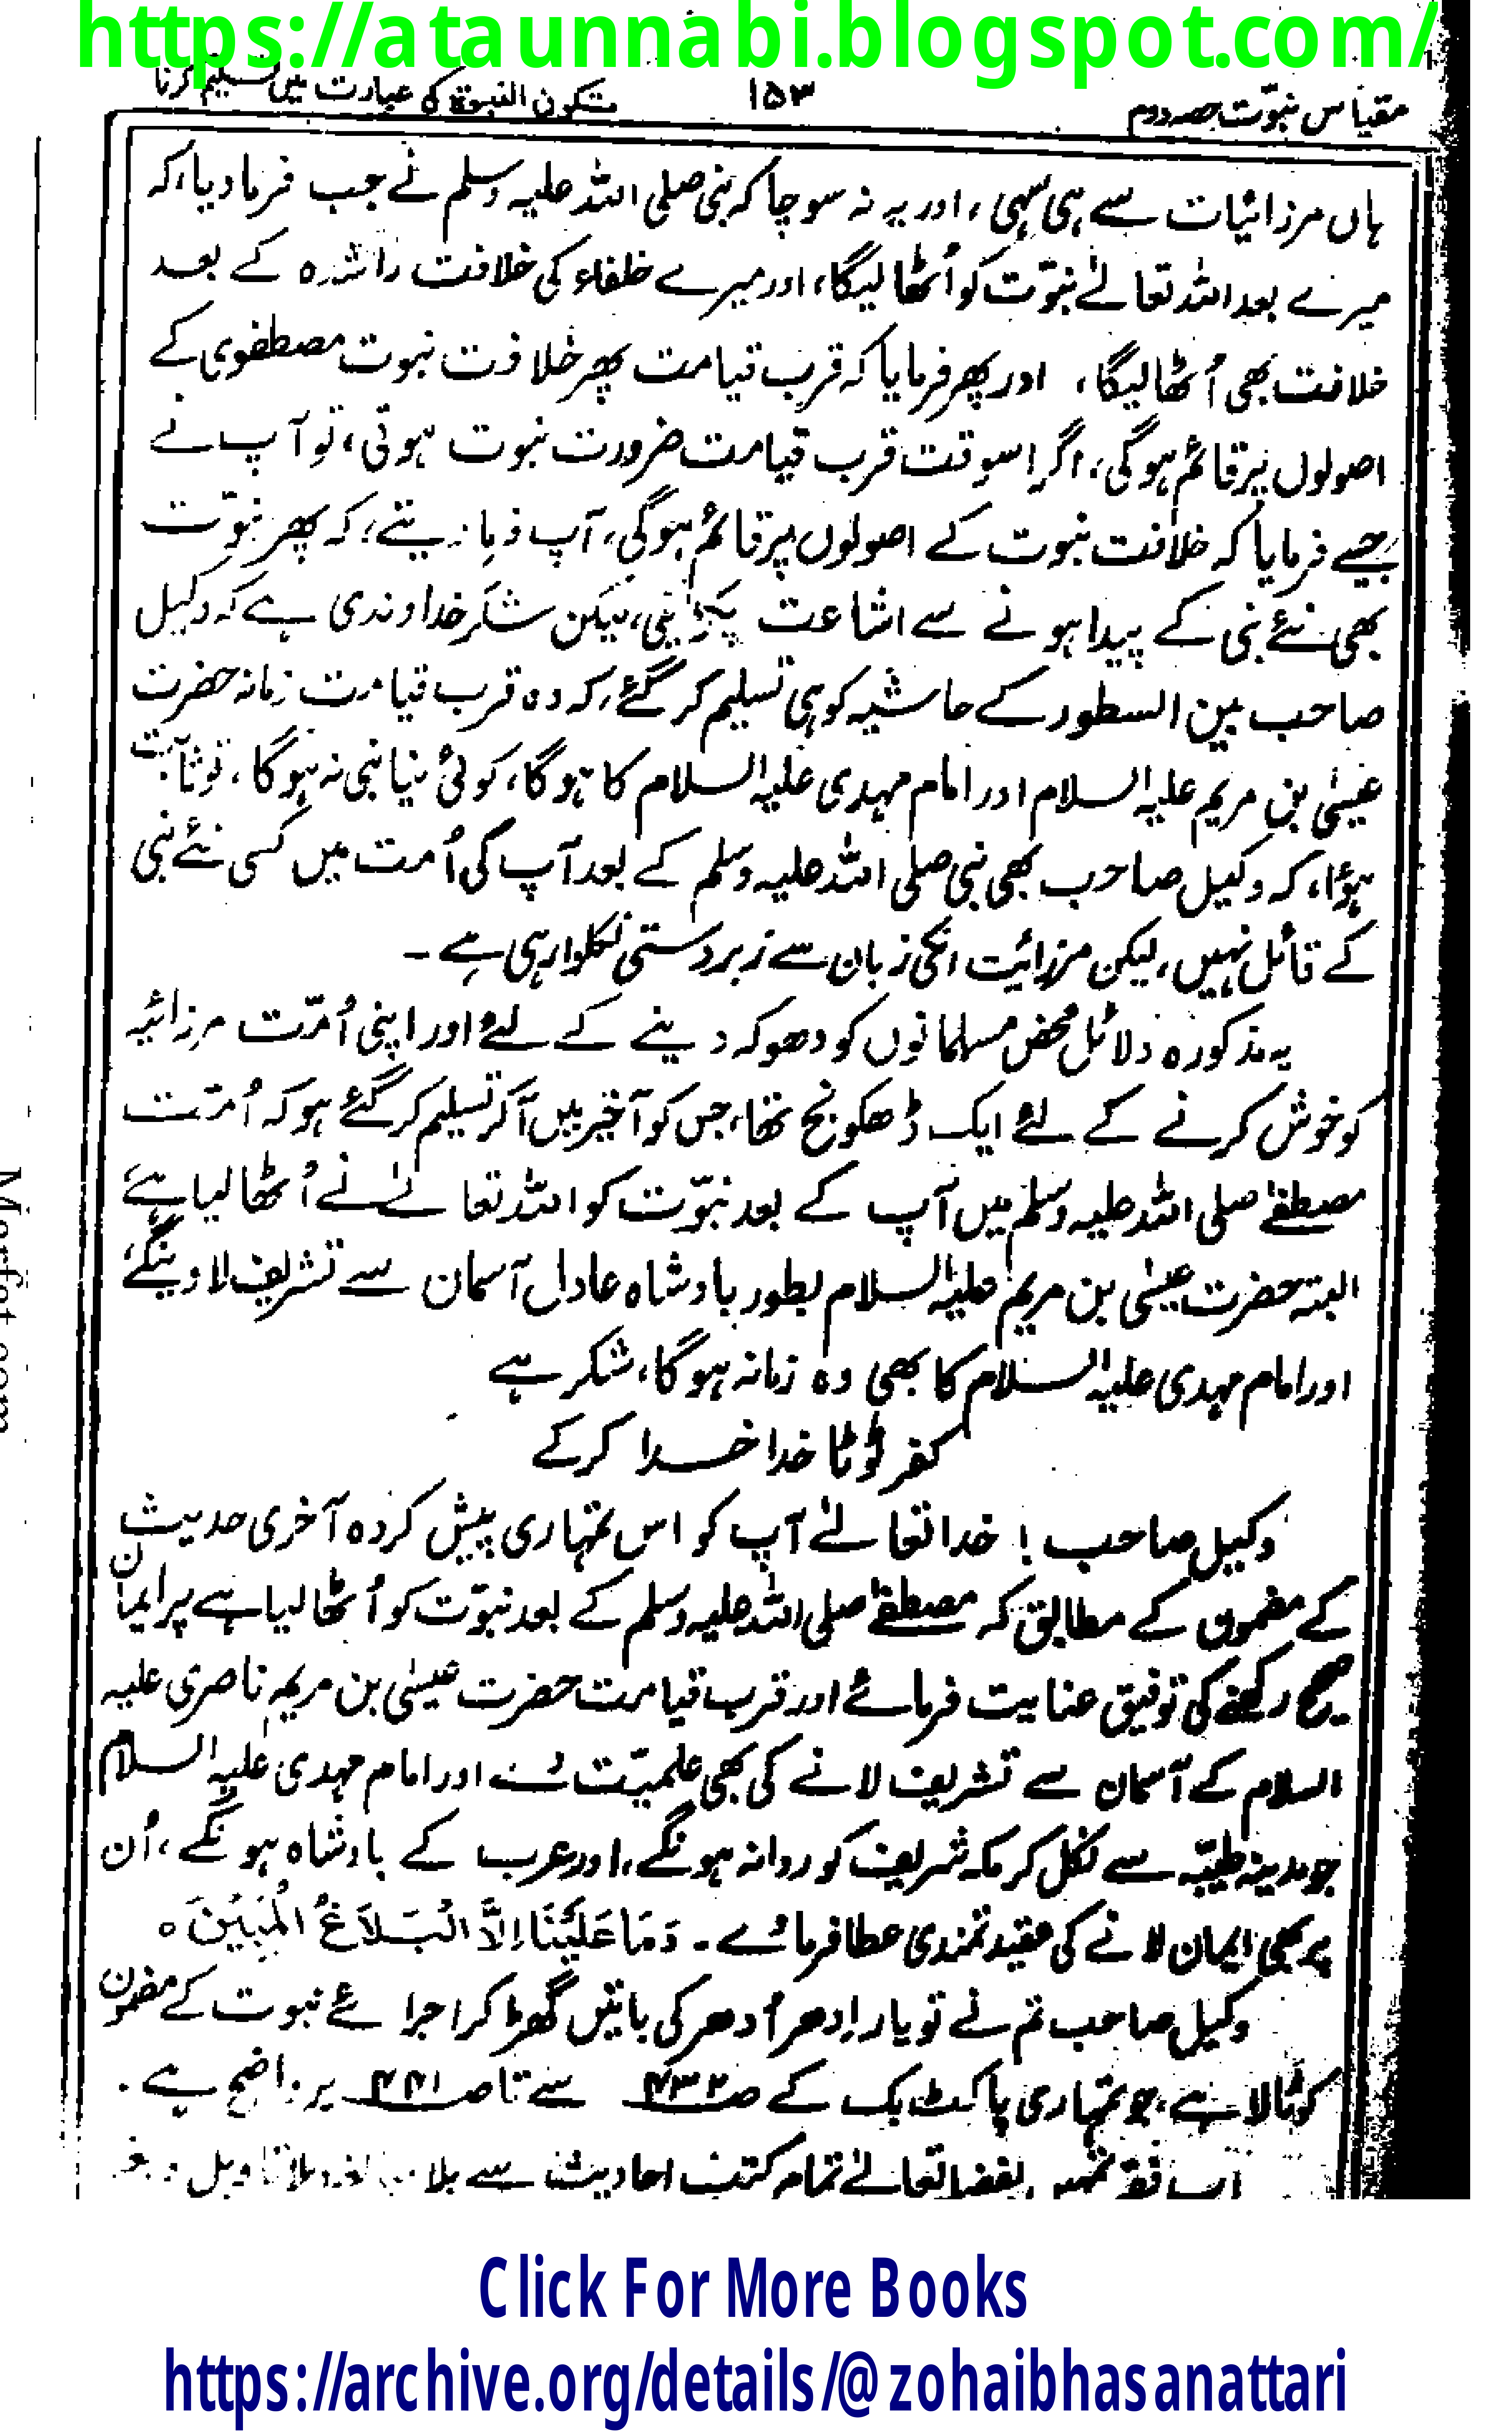 https://ataunnabi.blogspot.com/
مقیاس نبوّت حصہ دوم ۱۵۳ ستکون النبوۃ کی عبارت میں تسلیم کرنا
ہاں مرزائیات سے ہی سہی، اور یہ نہ سوچا کہ نبی صلی اللہ علیہ وسلم نے جب فرما دیا، کہ
میرے بعد اللہ تعالےٰ نبوّت کو اُٹھا لیگا، اور میرے خلفاء کی خلافت راشدہ کے بعد
خلافت بھی اُٹھا لیگا، اور پھر فرمایا کہ قرب قیامت پھر خلافت نبوت مصطفوی کے
اصولوں پر قائم ہوگی، اگر اسوقت قرب قیامت ضرورت نبوت ہوتی، تو آپ نے
جیسے فرمایا کہ خلافت نبوت کے اصولوں پر قائم ہوگی، آپ فرما دیتے، کہ پھر نبوّت
بھی نئے نبی کے پیدا ہونے سے اشاعت لیکن شکر خداوندی ہے کہ وکیل
صاحب بین السطور کے حاشیہ کو ہی تسلیم کر گئے، کہ وہ قرب قیامت زمانہ حضرت
عیسٰی بن مریم علیہ السلام اور امام مہدی علیہ السلام کا ہوگا، کوئی نیا نبی نہ ہوگا، تو ثابت
ہوُا، کہ وکیل صاحب بھی نبی صلی اللہ علیہ وسلم کے بعد آپ کی اُمت میں کسی نئے نبی
کے قائل نہیں، لیکن مرزائیت انکی زبان سے زبردستی نکلوا رہی ہے۔
یہ مذکورہ دلائل محض مسلمانوں کو دھوکہ دینے کے لئے اور اپنی اُمّت مرزائیہ
کو خوش کرنے کے لئے ایک ڈھکونج تھا، جس کو آخیر میں آکر تسلیم کر گئے ہو کہ اُمّت
مصطفےٰ صلی اللہ علیہ وسلم میں آپ کے بعد نبوّت کو اللہ تعالےٰ نے اُٹھا لیا ہے
البتہ حضرت عیسٰی بن مریم علیہ السلام بطور بادشاہ عادل آسمان سے تشریف لاوینگے
اور امام مہدی علیہ السلام کا بھی وہ زمانہ ہوگا، شکر ہے
کفر ٹوٹا خدا خدا کرکے
وکیل صاحب! خدا تعالےٰ آپ کو اس تمہاری پیش کردہ آخری حدیث
کے مضمون کے مطابق کہ مصطفےٰ صلی اللہ علیہ وسلم کے بعد نبوّت کو اُٹھا لیا ہے پر ایمان
صحیح رکھنے کی توفیق عنایت فرمائے اور قرب قیامت حضرت عیسٰی بن مریم ناصری علیہ
السلام کے آسمان سے تشریف لانے کی بھی علمیّت اور امام مہدی علیہ السلام
جو مدینہ طیبّہ سے نکل کر مکہ شریف کو روانہ ہونگے، اور عرب کے بادشاہ ہونگے، اُن
پر بھی ایمان لانے کی عقیدتمندی عطا فرمائے۔ وَمَا عَلَیْنَا اِلَّا الْبَلَاغُ الْمُبِیْنَ ہ
وکیل صاحب تم نے تو یار اِدھر اُدھر کی باتیں گھڑ کر اجرائے نبوت کے مضمون
کو ٹالا ہے، جو تمہاری پاکٹ بک کے صـ۴۳۲ سے تا صـ۴۴۱ پر واضح ہے۔
بفضلہ تعالےٰ تمام کتب احادیث سے بلا
Click For More Books
https://archive.org/details/@zohaibhasanattari